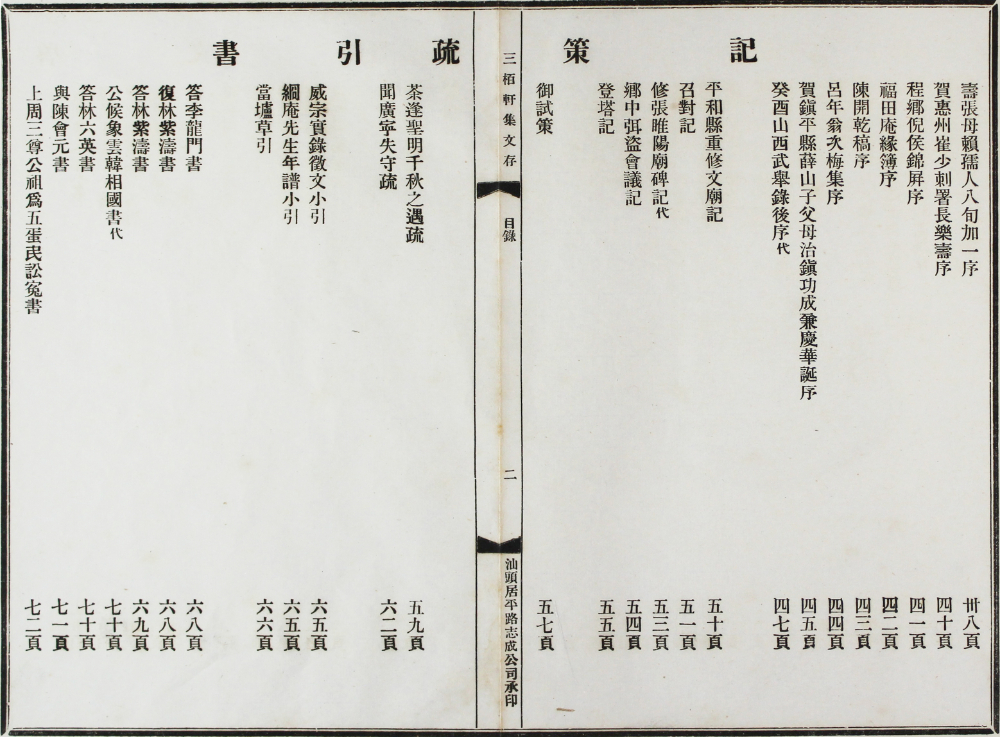 壽張母賴孺人八旬加一序 卅八頁
賀惠州崔少刺署長樂壽序 四十頁
程鄉倪侯錦屏序 四一頁
福田庵緣簿序 四二頁
陳開乾稿序 四三頁
呂年翁次梅集序 四四頁
賀鎭平縣薛山子父母治鎭功成兼慶華誕序 四五頁
癸酉山西武舉錄後序代 四七頁
記
平和縣重修文廟記 五十頁
召對記 五一頁
修張睢陽廟碑記代 五三頁
鄉中弭盜會議記 五四頁
登塔記 五五頁
策
御試策 五七頁
三栢軒集文存
目錄
二
汕頭居平路志成公司承印
疏
茶逢聖明千秋之遇疏 五九頁
聞廣寧失守疏 六二頁
引
威宗實錄徵文小引 六五頁
綱庵先生年譜小引 六五頁
當壚草引 六六頁
書
答李龍門書 六八頁
復林紫濤書 六八頁
答林紫濤書 六九頁
公候象雲韓相國書代 七十頁
答林六英書 七十頁
與陳會元書 七一頁
上周三尊公祖爲五蛋民訟寃書 七二頁